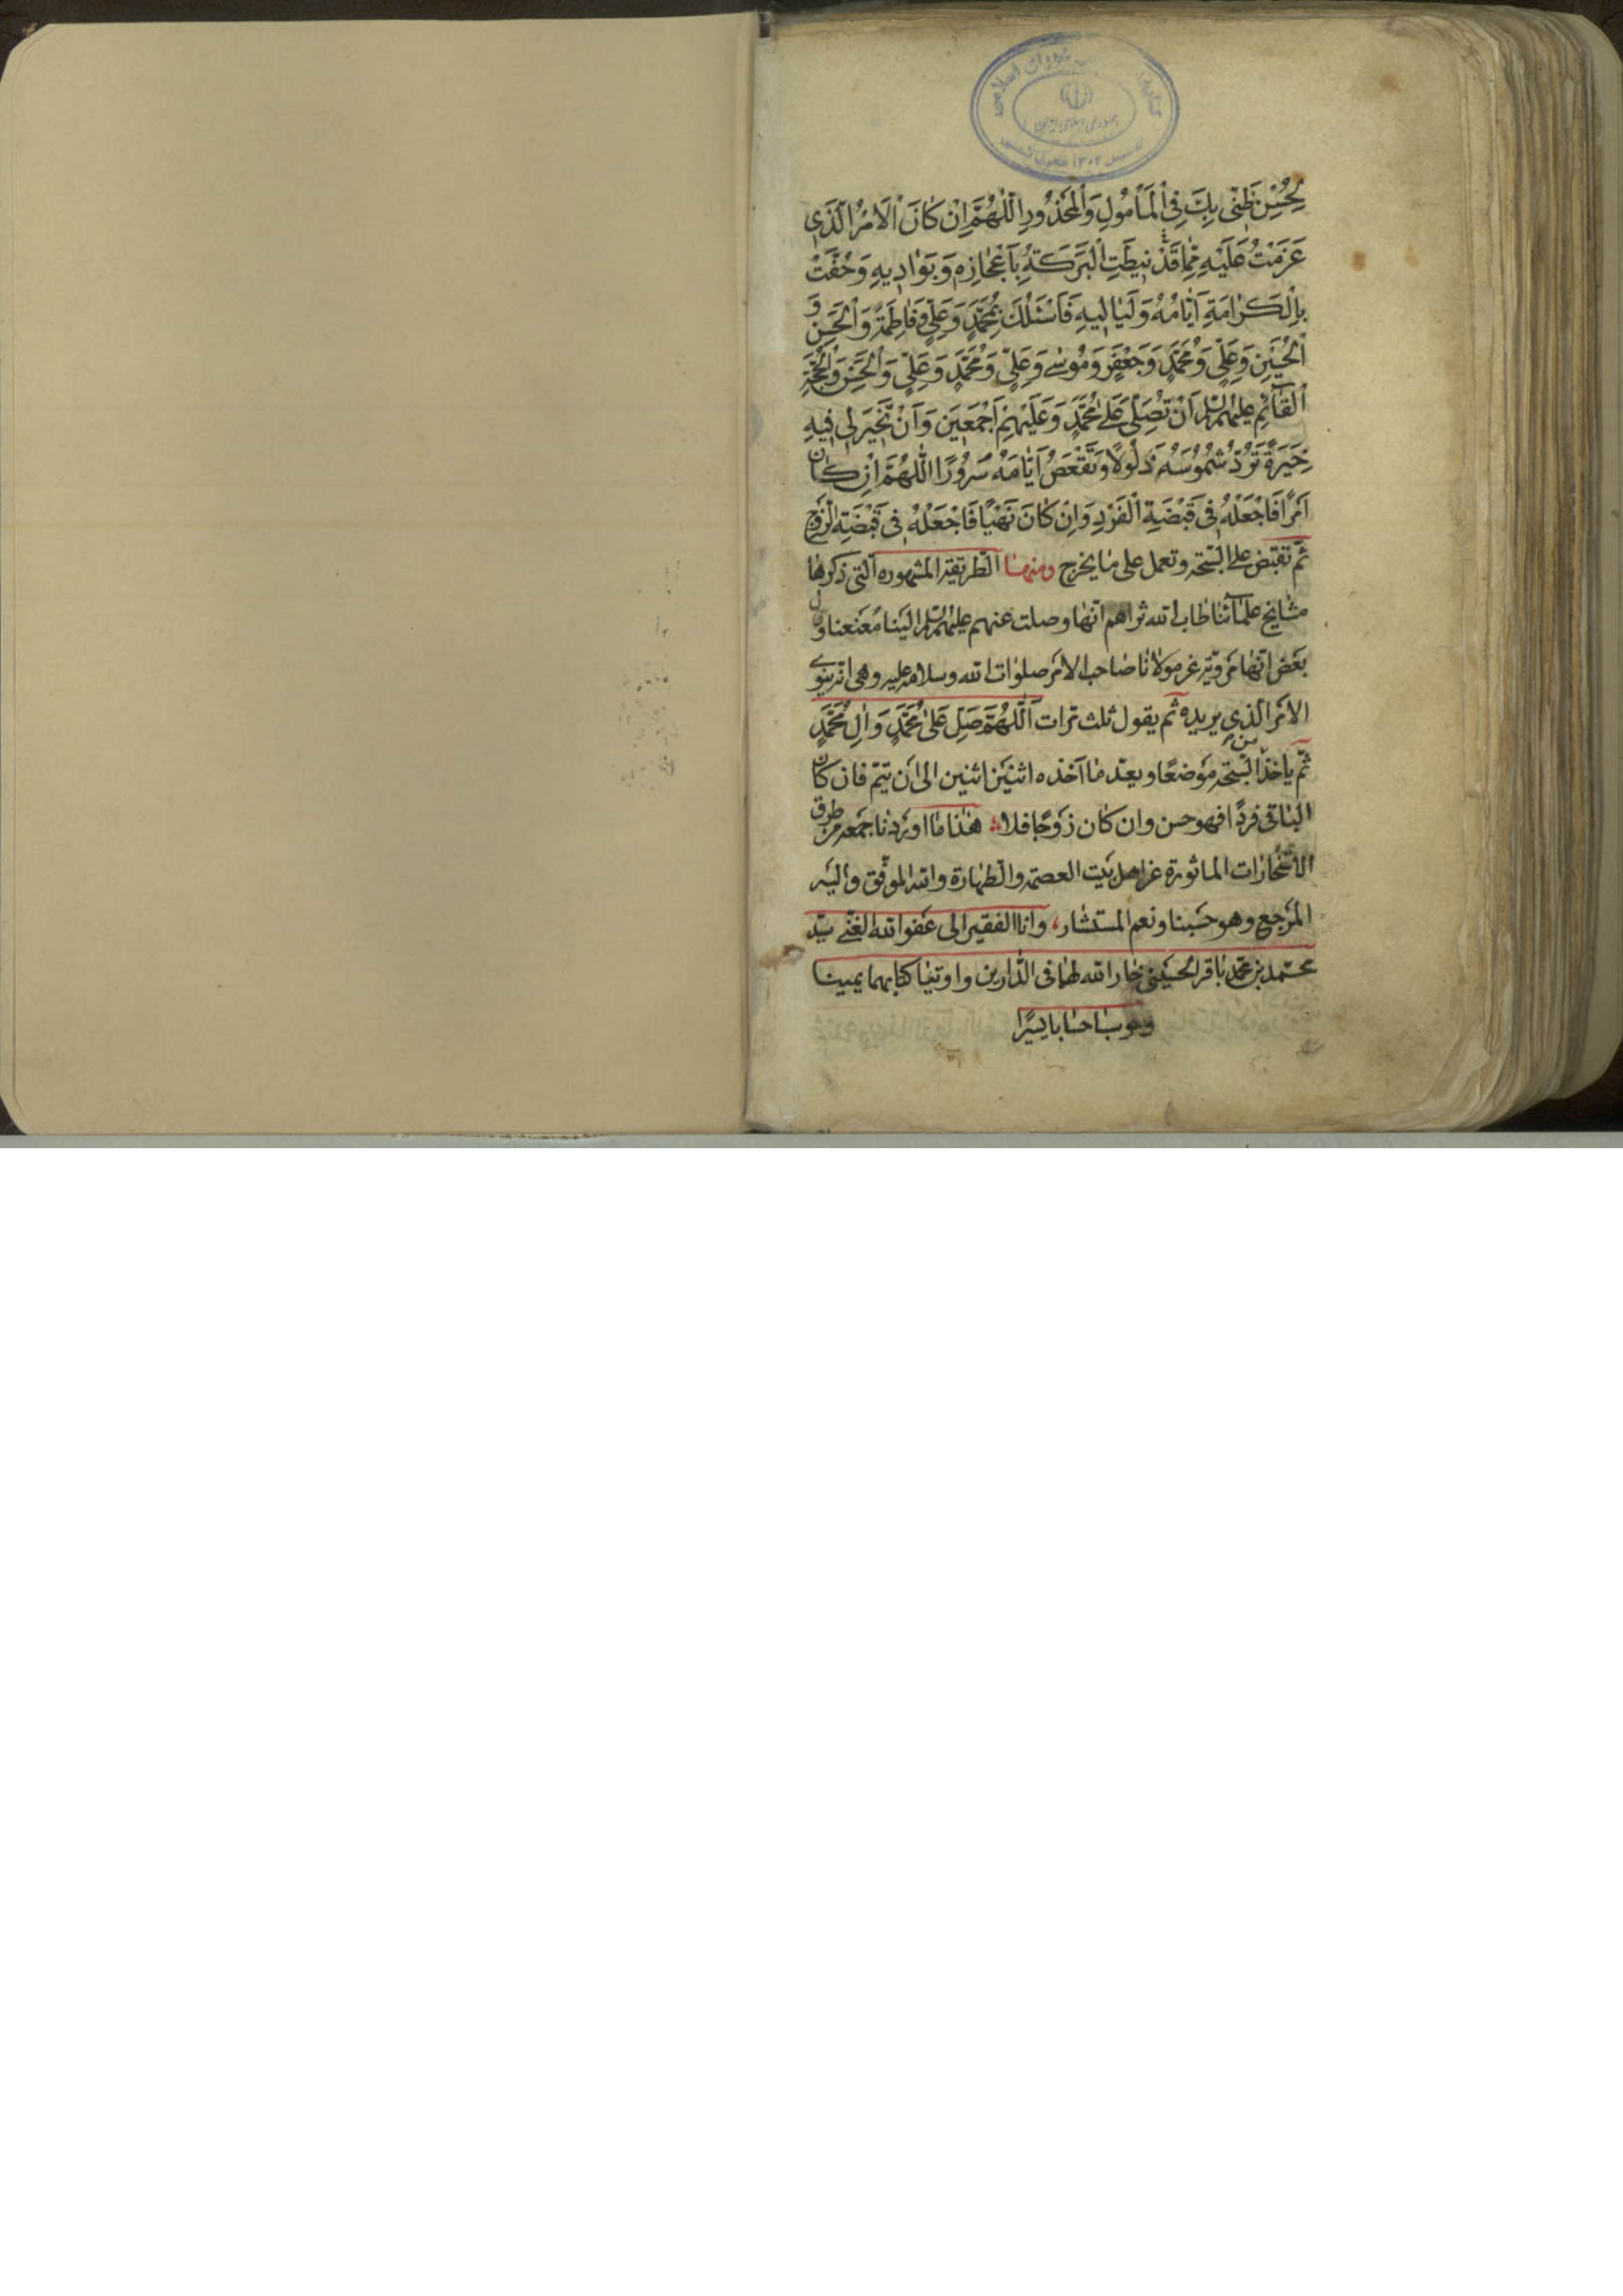 لِحُسْنِ ظَنّى بِكَ فِى الْمَأمُولِ وَالْمَحْذُورِ اَللّٰهُمَّ اِنْ كَانَ الْاَمْرُ الَّذى
عَزَمْتُ عَلَيْهِ مِمّا قَدْ نيطَتِ الْبَرَكَةُ بِاَعْجازِهِ وَ بَوَاديهِ وَ حُفَّتْ
بِالْكَرامَةِ اَيّامُهُ وَ لَياليهِ فَاَسْئَلُكَ بِمُحَمَّدٍ وَ عَلِيٍّ وَ فاطِمَةَ وَ الْحَسَنِ وَ
الْحُسَيْنِ وَ عَلِيٍّ وَ مُحَمَّدٍ وَ جَعْفَرٍ وَ مُوسٰى وَ عَلِيٍّ وَ مُحَمَّدٍ وَ عَلِيٍّ وَ الْحَسَنِ وَ الْحُجَّةِ
الْقآئِمِ عليهم السلم اَنْ تُصَلِّىَ عَلٰى مُحَمَّدٍ وَ عَلَيْهِمْ اَجْمَعينَ وَ اَنْ تَخيرَ لى فيهِ
خِيَرَةً تَرُدُّ شُمُوسَهُ ذَلُولاً وَ تَقْعَصُ اَيّامَهُ سُرُورًا اَللّٰهُمَّ اِنْ كان
اَمْرًا فَاجْعَلْهُ فى قَبْضَةِ الْفَرْدِ وَ اِنْ كانَ نَهْيًا فَاجْعَلْهُ فى قَبْضَةِ الزَّوْجِ
ثمّ تقبض على السّبحه و تعمل على ما يخرج ومنها الطّريقة المشهوره الّتى ذكرها
مشايخ علمآئنا طاب الله ثراهم انّها وصلت عنهم عليهم السّلم الينا معنعنا و قال
بعض انّها مرويّة عن مولانا صاحب الامر صلوات الله وسلامه عليه و هى ان ينوى
الامر الّذى يريده ثم يقول ثلث مرات اَللّٰهُمَّ صَلِّ عَلىٰ مُحَمَّدٍ وَ اٰلِ مُحَمَّدٍ
ثمّ ياخذ من السّبحه موضعًا و يعدّ ما آخذه اثنين اثنين الى ان يتمّ فان كان
الباقى فردًا فهو حسن و ان كان زوجًا فلا هذا ما اوردنا جمعه من طرق
الاستخارات الماثورة عن اهل بيت العصمة و الطّهارة و الله الموفّق و اليه
المرجع و هو حسبنا و نعم المستشار، و انا الفقير الى عفو الله الغنى سيّد
محمد بن محمد باقر الحسينى خار الله لهما فى الدّارين و اوتيا كتابهما يمينا
و حوسبا حسابا يسيرًا